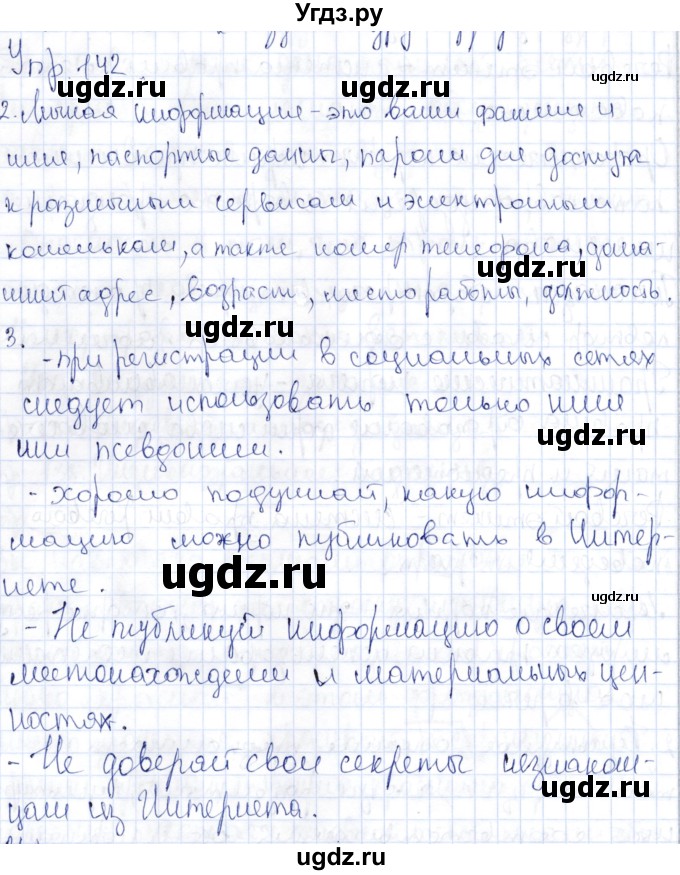 Угdz.ру
Упр. 142
2. Личная информация - это ваши фамилия и
имя, паспортные данные, пароли для доступа
к различным сервисам и электронным
кошелькам, а также номер телефона, дома-
шний адрес, возраст, место работы, должность.
3.
- при регистрации в социальных сетях
следует использовать только имя
или псевдоним.
- хорошо подумай, какую инфор-
мацию можно публиковать в Интер-
нете.
- Не публикуй информацию о своем
местонахождении и материальных цен-
ностях.
- Не доверяй свои секреты незнаком-
цам из Интернета.
ugdz.ru
ugdz.ru
ugdz.ru
ugdz.ru
ugdz.ru
ugdz.ru
ugdz.ru
ugdz.ru
ugdz.ru
ugdz.ru
ugdz.ru
ugdz.ru
ugdz.ru